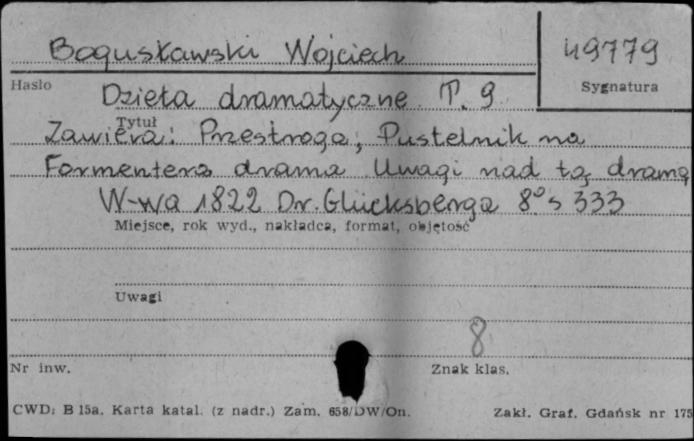 Bogusławski Wojciech
49779
Hasło
Sygnatura
Dzieła dramatyczne T. 9
Tytuł
Zawiera: Przestroga, Pustelnik na
Formentera drama Uwagi nad tą dramą
W-wa 1822 Dr. Glücksberga 8° s 333
Miejsce, rok wyd., nakładca, format, objętość
Uwagi
8
Nr inw.
Znak klas.
CWD: B 15a. Karta katal. (z nadr.) Zam. 658/DW/On.
Zakł. Graf. Gdańsk nr 175